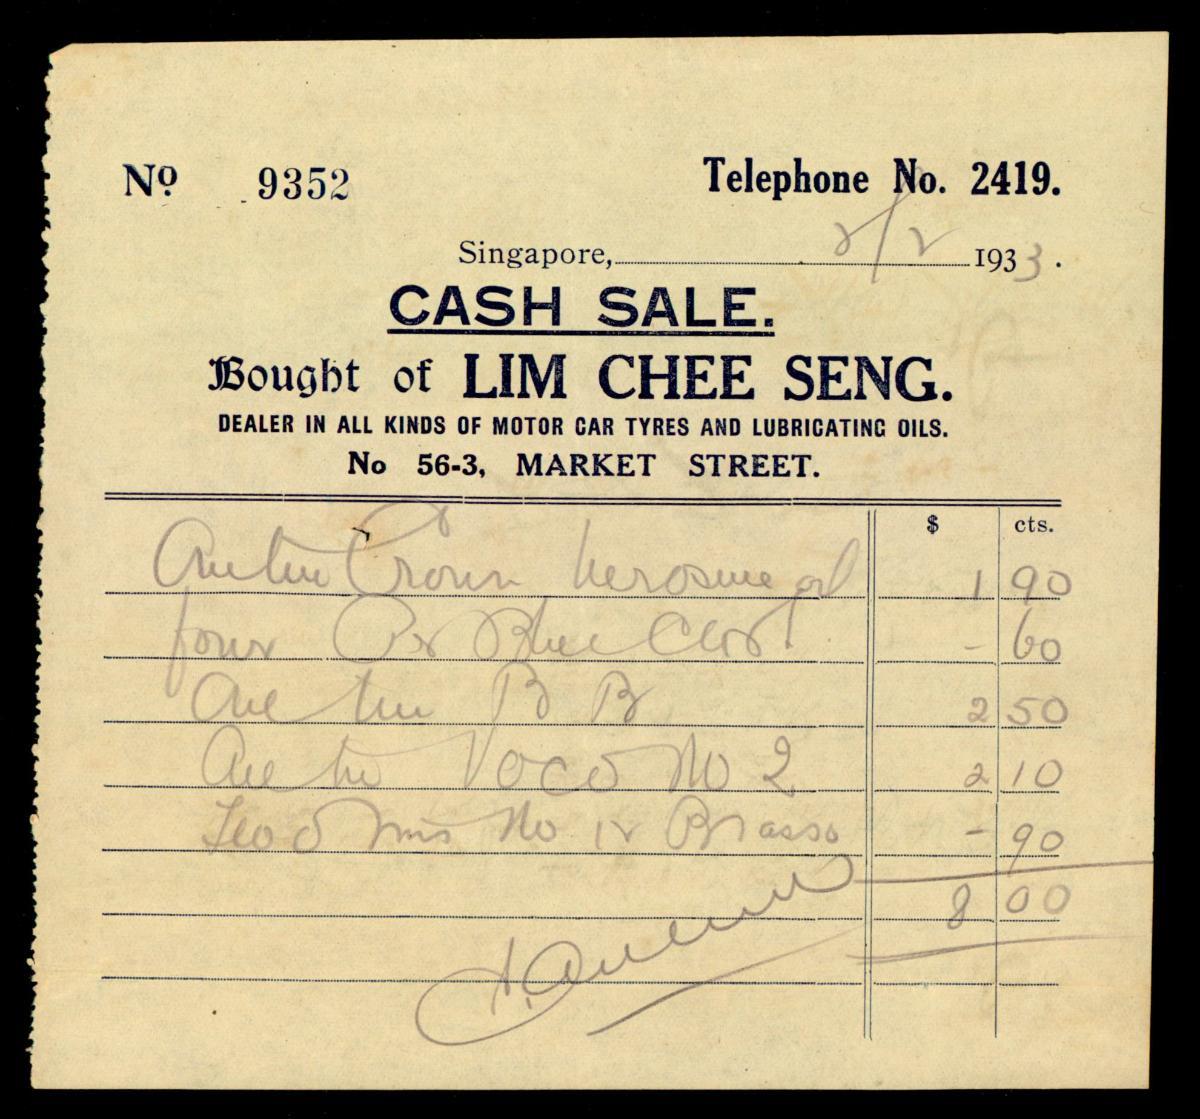 Nº 9352
Telephone No. 2419.
Singapore, 2/2 1933.
CASH SALE.
Bought of LIM CHEE SENG.
DEALER IN ALL KINDS OF MOTOR CAR TYRES AND LUBRICATING OILS.
No 56-3, MARKET STREET.
$ cts.
One tin Crown Kerosine oil 1 90
four Blue - 60
One tin B B 2 50
One tin Voco No 2 2 10
Two tins No 12 Brasso - 90
8 00